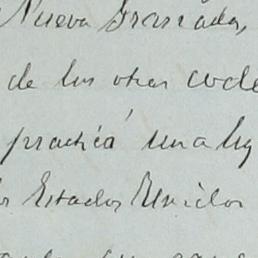 Nueva Granada,
de los otros code
practicá una ley
os Estados Unidos